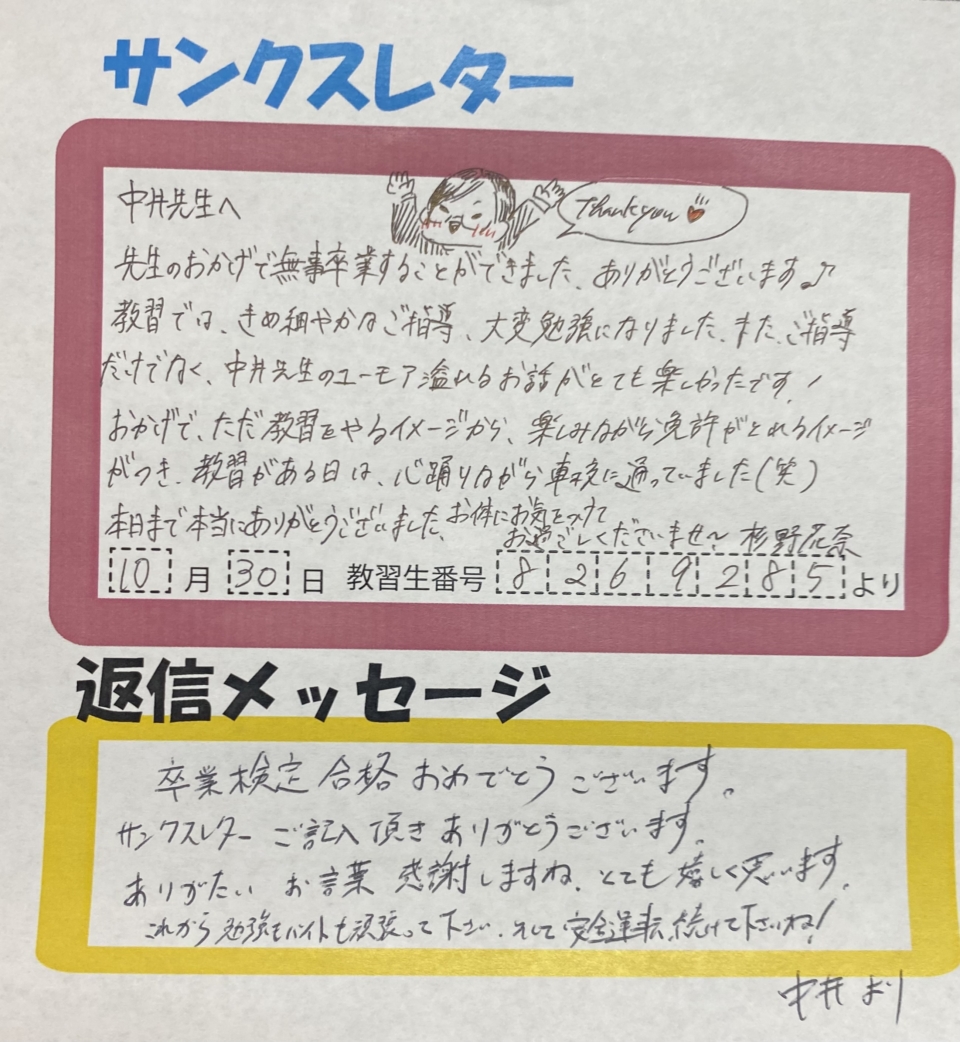 サンクスレター
中井先生へ
Thank you
先生のおかげで無事卒業することができました、ありがとうございます♪
教習では、きめ細やかなご指導、大変勉強になりました、また、ご指導
だけでなく、中井先生のユーモア溢れるお話がとても楽しかったです!
おかげで、ただ教習をやるイメージから、楽しみながら免許がとれるイメージ
がつき、教習がある日は、心踊りながら車校に通っていました(笑)
本日まで本当にありがとうございました、お体にお気をつけて
お過ごしくださいませ〜 杉野花奈
10月30日 教習生番号 8269285より
返信メッセージ
卒業検定合格おめでとうございます。
サンクスレターご記入頂きありがとうございます。
ありがたいお言葉感謝しますね。とても嬉しく思います。
これから勉強もバイトも頑張って下さい。そして安全運転続けて下さいね!
中井より